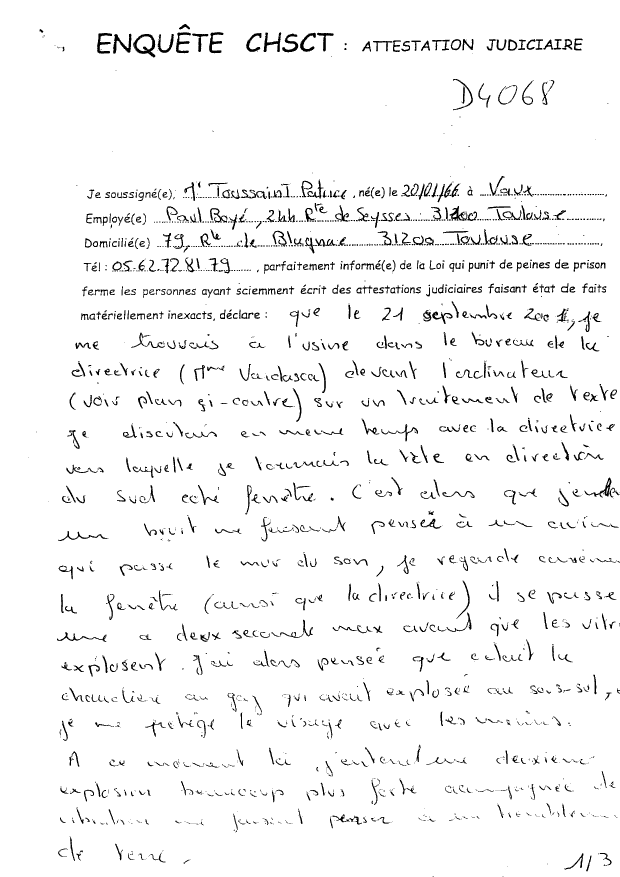 ENQUÊTE CHSCT : ATTESTATION JUDICIAIRE
D4068
Je soussigné(e), Mr Toussaint Patrice, né(e) le 20/01/66 à Vaux
Employé(e) Paul Boyé, 244 Rte de Seysses 31200 Toulouse
Domicilié(e) 79, Rte de Blagnac 31200 Toulouse
Tél : 05.62.72 81 79, parfaitement informé(e) de la Loi qui punit de peines de prison
ferme les personnes ayant sciemment écrit des attestations judiciaires faisant état de faits
matériellement inexacts, déclare : que le 21 septembre 2001, je
me trouvais à l'usine dans le bureau de la
directrice (Mme Vardasca) devant l'ordinateur
(voir plan ci-contre) sur un traitement de texte
je discutais en meme temps avec la directrice
vers laquelle je tournais la tête en direction
du Sud coté fenêtre. C'est alors que j'enten
un bruit me faisant pensée à un avion
qui passe le mur du son, je regarde
la fenêtre (ainsi que la directrice) il se passe
une a deux seconde max avant que les vitr
explosent. J'ai alors pensée que c'etait la
chaudière au gaz qui avait explosée au sous-sol,
je me protége le visage avec les mains.
A ce moment la, j'entend une deuxieme
explosion beaucoup plus forte acompagnée de
vibration me faisant penser à un trembleme
de terre.
1/3